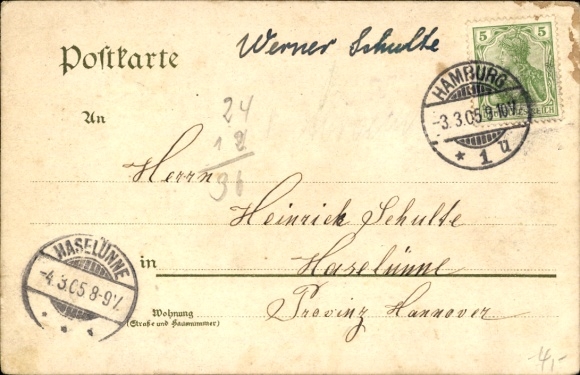 Postkarte
Werner Schulte
5 5
REICH
HAMBURG
3.3.05.8-10V.
* 1 u
An
24
12
36
Herrn
Heinrich Schulte
in Haselünne
Wohnung
(Straße und Hausnummer)
Provinz Hannover
HASELÜNNE
-4.3.05 8-9V.
-4,-